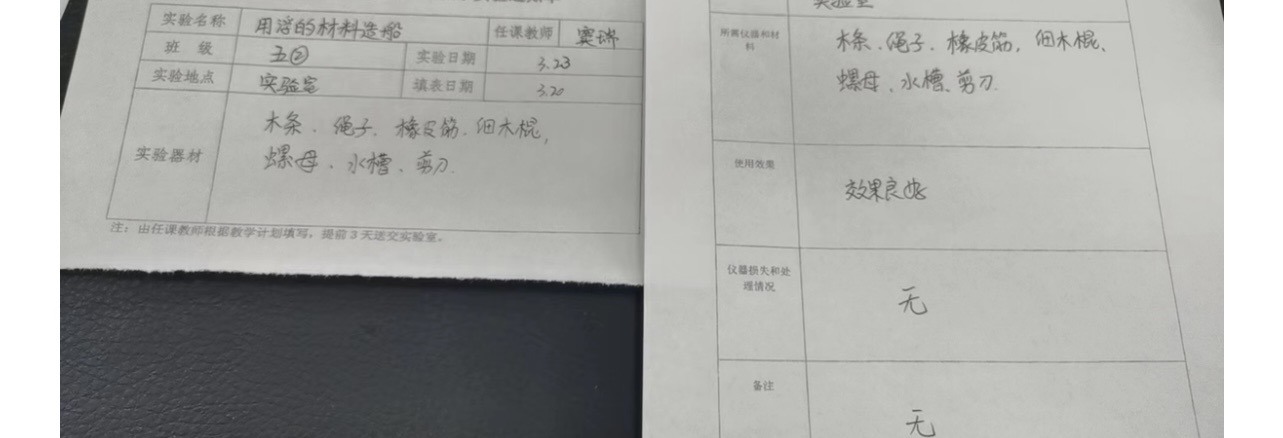 实验名称 用浮的材料造船 任课教师 窦瑞
班 级 五② 实验日期 3.23
实验地点 实验室 填表日期 3.20
实验器材 木条、绳子、橡皮筋、细木棍,
螺母、水槽、剪刀.
注：由任课教师根据教学计划填写，提前3天送交实验室。
实验室
所需仪器和材料 木条、绳子、橡皮筋，细木棍、
螺母、水槽、剪刀.
使用效果
效果良好
仪器损失和处
理情况
无
备注
无